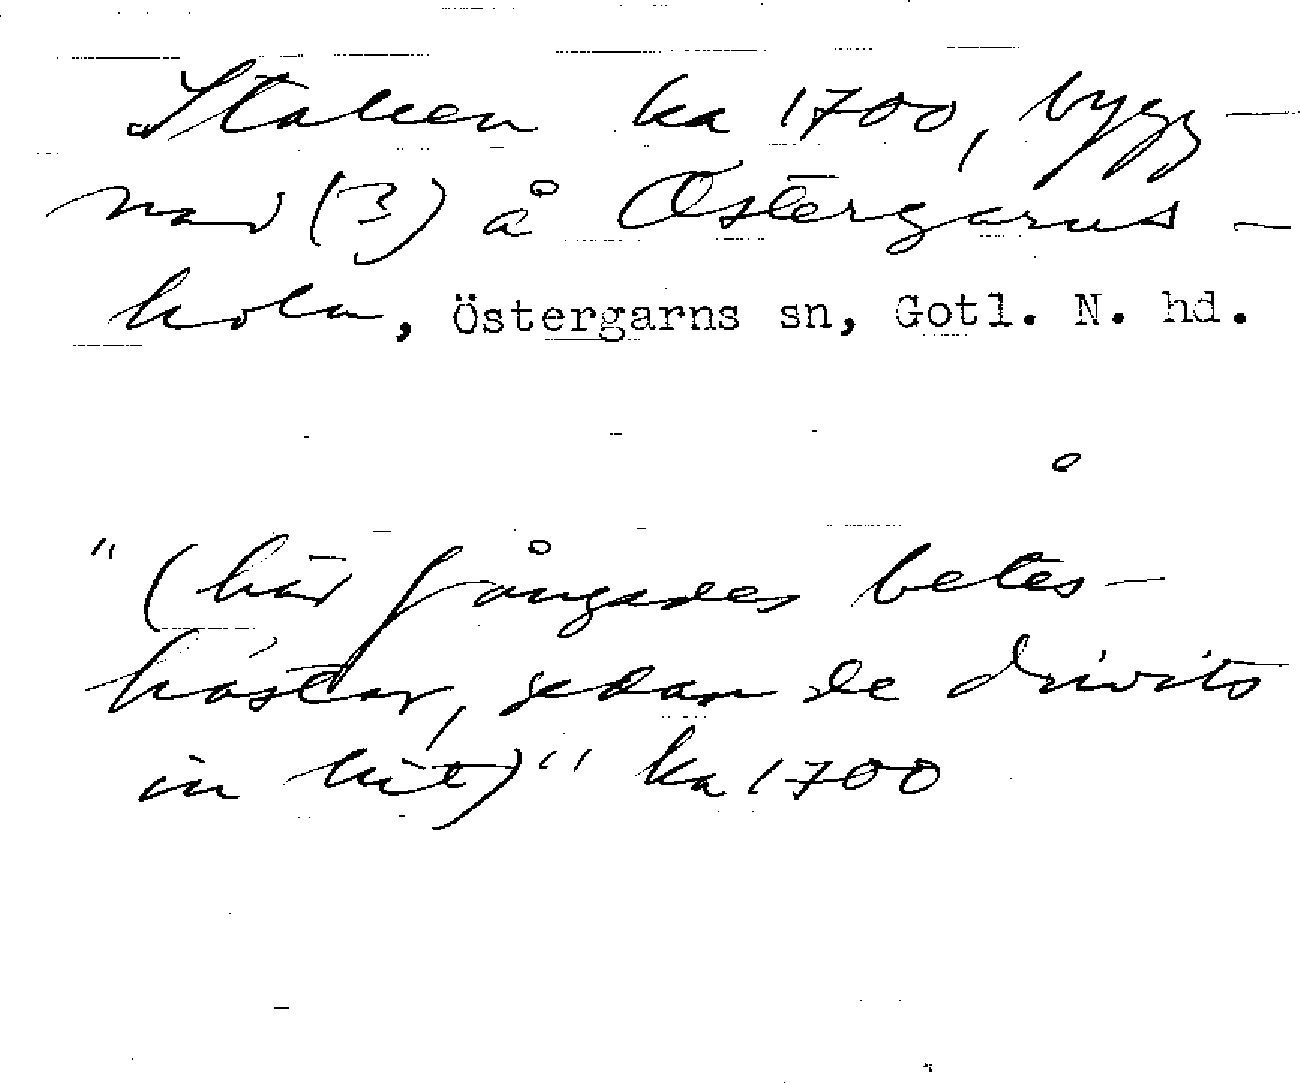 Staken ka 1700, bygg-
nad (?) å Östergarns-
holm, Östergarns sn, Gotl. N. hd.
"(här fångades betes-
hästar, sedan de drivits
in hit)" ka 1700